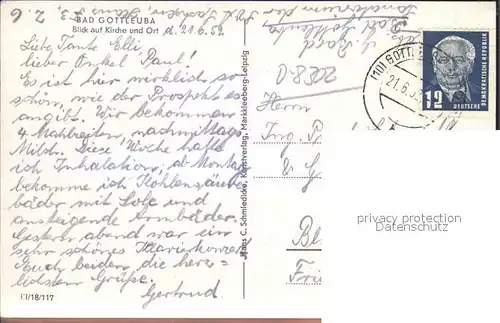 BAD GOTTLEUBA
Blick auf Kirche und Ort
d. 21.6.52
Liebe Tante Elli
lieber Onkel Paul!
Es ist hier wirklich so
schön, wie der Prospekt es
angibt. Wir bekommen
4 Mahlzeiten, nachmittags
Milch. Diese Woche hatte
ich Inhalation, ab Montag
bekomme ich Kohlensäure-
bäder mit Sole und
ansteigende Armbäder.
Gestern abend war ein
sehr schönes Klavierkonzert
Euch beiden die herz-
lichsten Grüße.
Gertrud
II/18/117
Hans C. Schmiedicke, Kunstverlag, Markkleeberg-Leipzig
Bad Gottleuba
Herrn
Ing. P
(10) GOTT
21.6.
12
DEUTSCHE
DEMOKRATISCHE REPUBLIK
privacy protection
Datenschutz